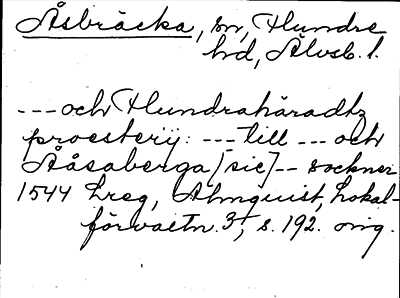 Åsbräcka, sn, Hundre
hd, Älvsb. l.
--- och Hundrahäradtz
proesterij: --- till --- och
Ååsaberga [sic] -- sockner
1544 Lreg, Almquist, Lokal-
förvaltn. 3, s. 192. orig.